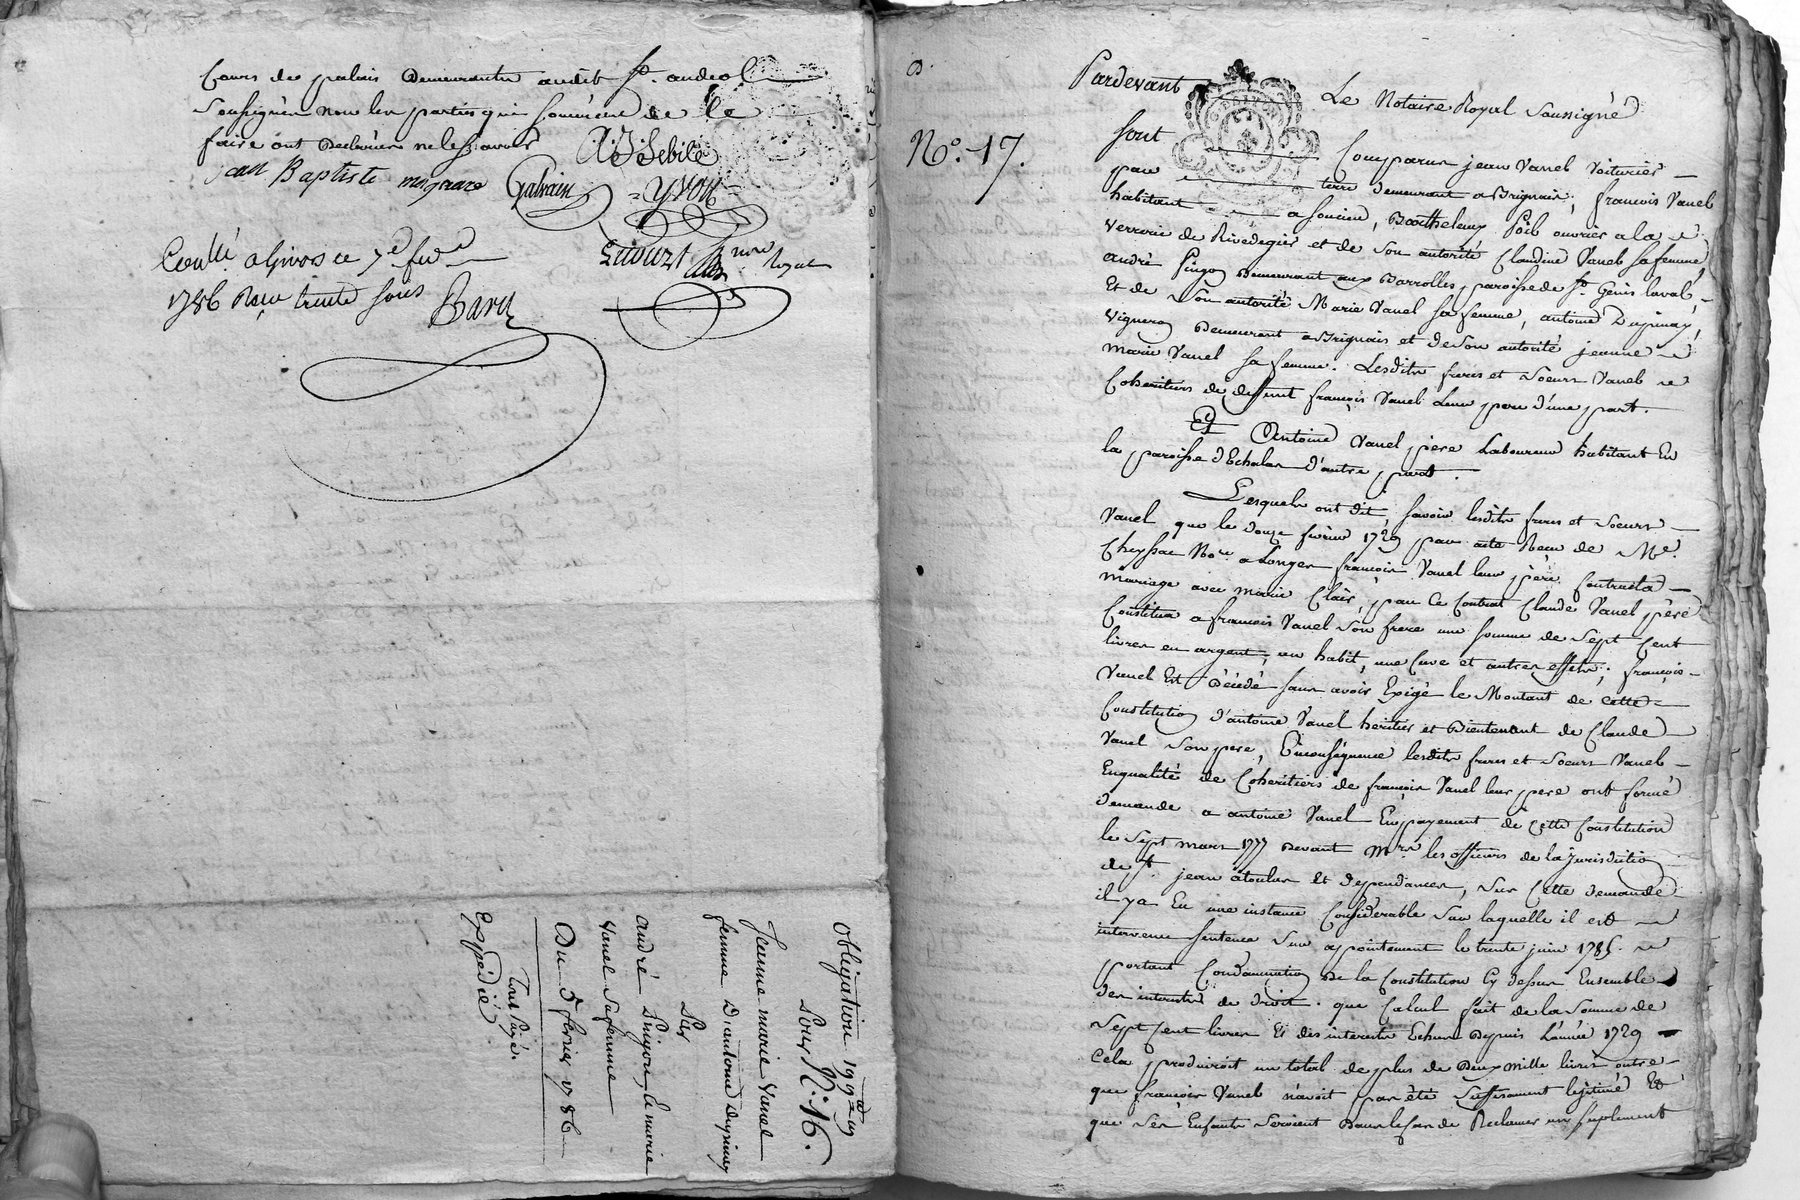 Cours de palais demeurantz audit St. andeol
Soussignés non les parties qui sommées de le
faire ont déclarées ne le sçavoir
jean Baptiste
Galvain
yvon
nore royal
Conllé a Givors ce 7e fevr
1786 Reçu trente sous
Obligation
Pour N.º 16.
Jeanne marie Vanel
femme D'antoine Dupinay
Par
andré Pingon, & marie
Vanel Sa femme
Du 5 fevrier 1786
Tout Payé.
Exppédié
N.º 17.
Pardevant Le Notaire Royal Soussigné
Sont Comparus jean Vanel Voiturier
par terre demeurant a Brignais, françois Vanel
habitant a Soucieu, Barthelemy ouvrier a la
Verrerie de Rivedegier et de Son autorité Claudine Vanel sa femme
andré Pingon Demeurant aux Barrolles, paroisse de St. Genis laval,
Et de Son autorité Marie Vanel sa femme, antoine Dupinay,
Vigneron Demeurant a Brignais et de Son autorité jeanne
marie Vanel sa femme. Lesdits freres et Soeurs Vanel
Coheritiers de deffunt françois Vanel Leur pere d'une part.
Et Antoine Vanel pere Laboureur habitant En
la paroisse d'Echalas d'autre part.
Lesquels ont dit, savoir lesdits freres et Soeurs
Vanel que le douze fevrier 1729 par acte Recu de Me.
Cheyssac Nore a Longes françois Vanel leur père Contracta
mariage avec marie Clair, par ce Contrat Claude Vanel père
Constitua a francois Vanel Son frere une somme de Sept Cent
livres en argent, un habit, une Cuve et autres effets; françois
Vanel Est Décédé sans avoir Exigé le Montant de cette
Constitution d'antoine Vanel heritier et Bientenant de Claude
Vanel Son pere, Enconséquence lesdits freres et Soeurs Vanel
Enqualité de Coheritiers de françois Vanel leur pere ont formé
demande a antoine Vanel Enpayement de cette Constitution
le Sept mars 1777 Devant Mrs les officiers de la jurisdiction
de St. jean atoulas Et dependances, Sur Cette demande
il ya Eu une instance Considerable Sur laquelle il est
intervenu Sentence Sur appointement le trente juin 1785.
portant Condamnation De la Constitution Cy dessus Ensemble
des interetz de Droit. que Calcul fait de la Somme de
Sept Cent livres Et des interetz Echus Depuis L'année 1729
Cela produiroit un total de plus de Deux mille livres outre
que françois Vanel n'avoit pas été suffisament legitimé Et
que Ses Enfants Seroient Dans le cas de Reclamer un Suplement